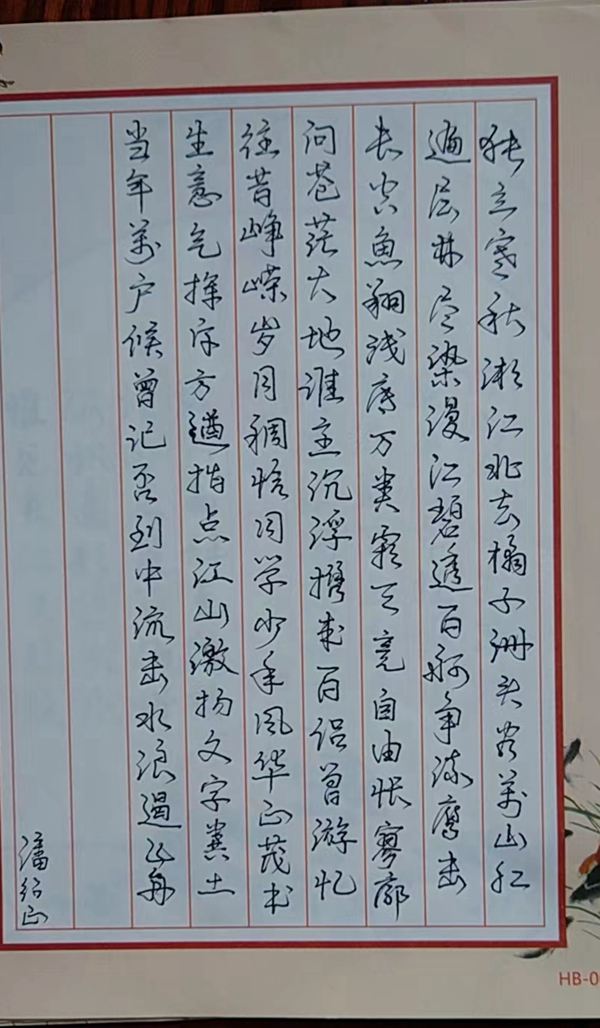 独立寒秋湘江北去橘子洲头看萬山红
遍层林尽染漫江碧透百舸争流鹰击
长空魚翔浅底万类霜天竞自由怅寥廓
问苍茫大地谁主沉浮携来百侣曾游忆
往昔峥嵘岁月稠恰同学少年风华正茂书
生意气挥斥方遒指点江山激扬文字粪土
当年萬户候曾记否到中流击水浪遏飞舟
潘绍正